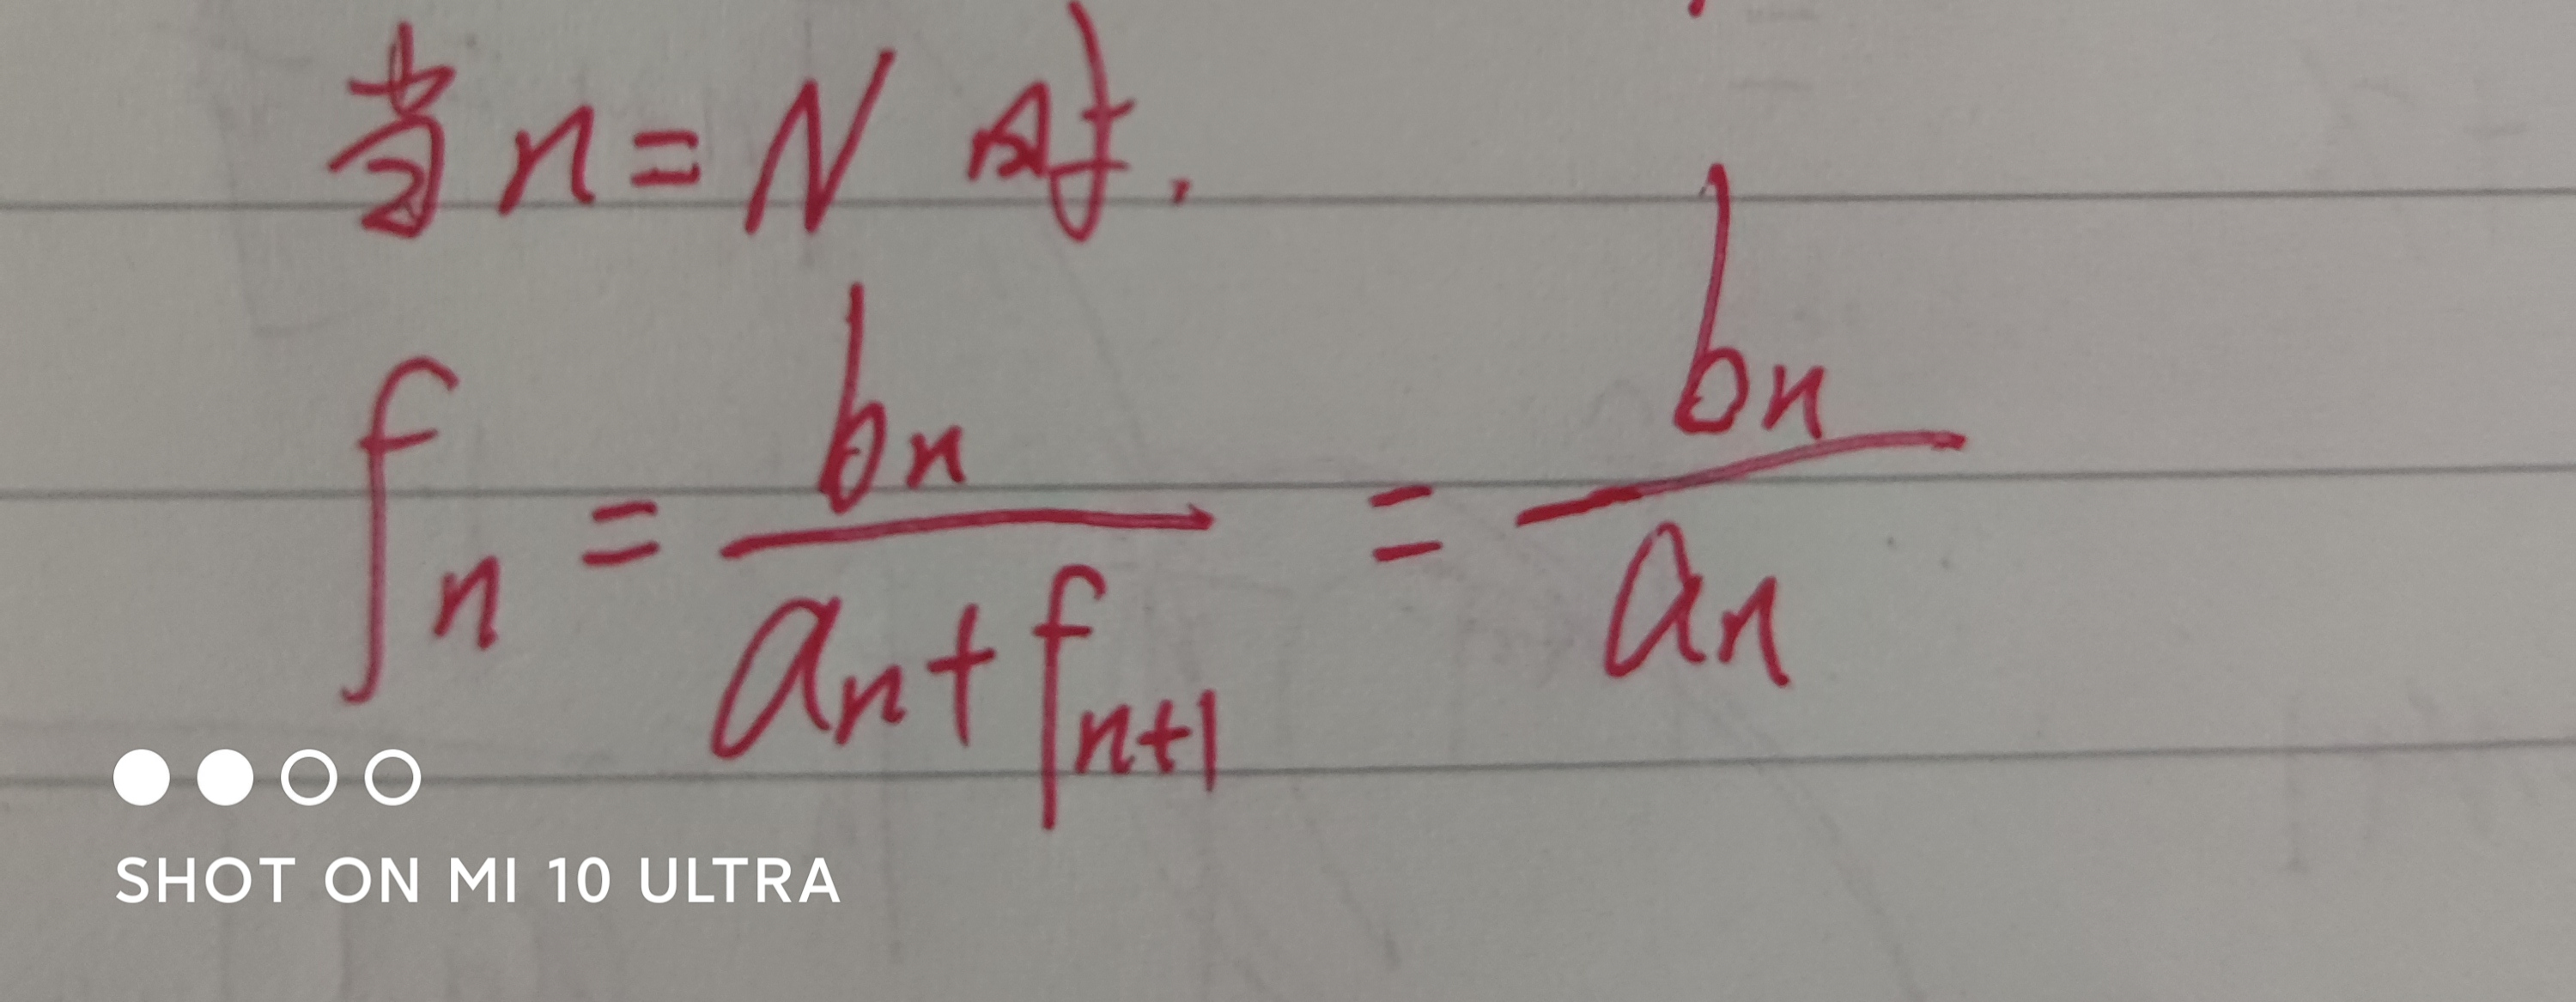 当 n = N 时,
fₙ = bₙ / (aₙ + fₙ₊₁) = bₙ / aₙ
SHOT ON MI 10 ULTRA